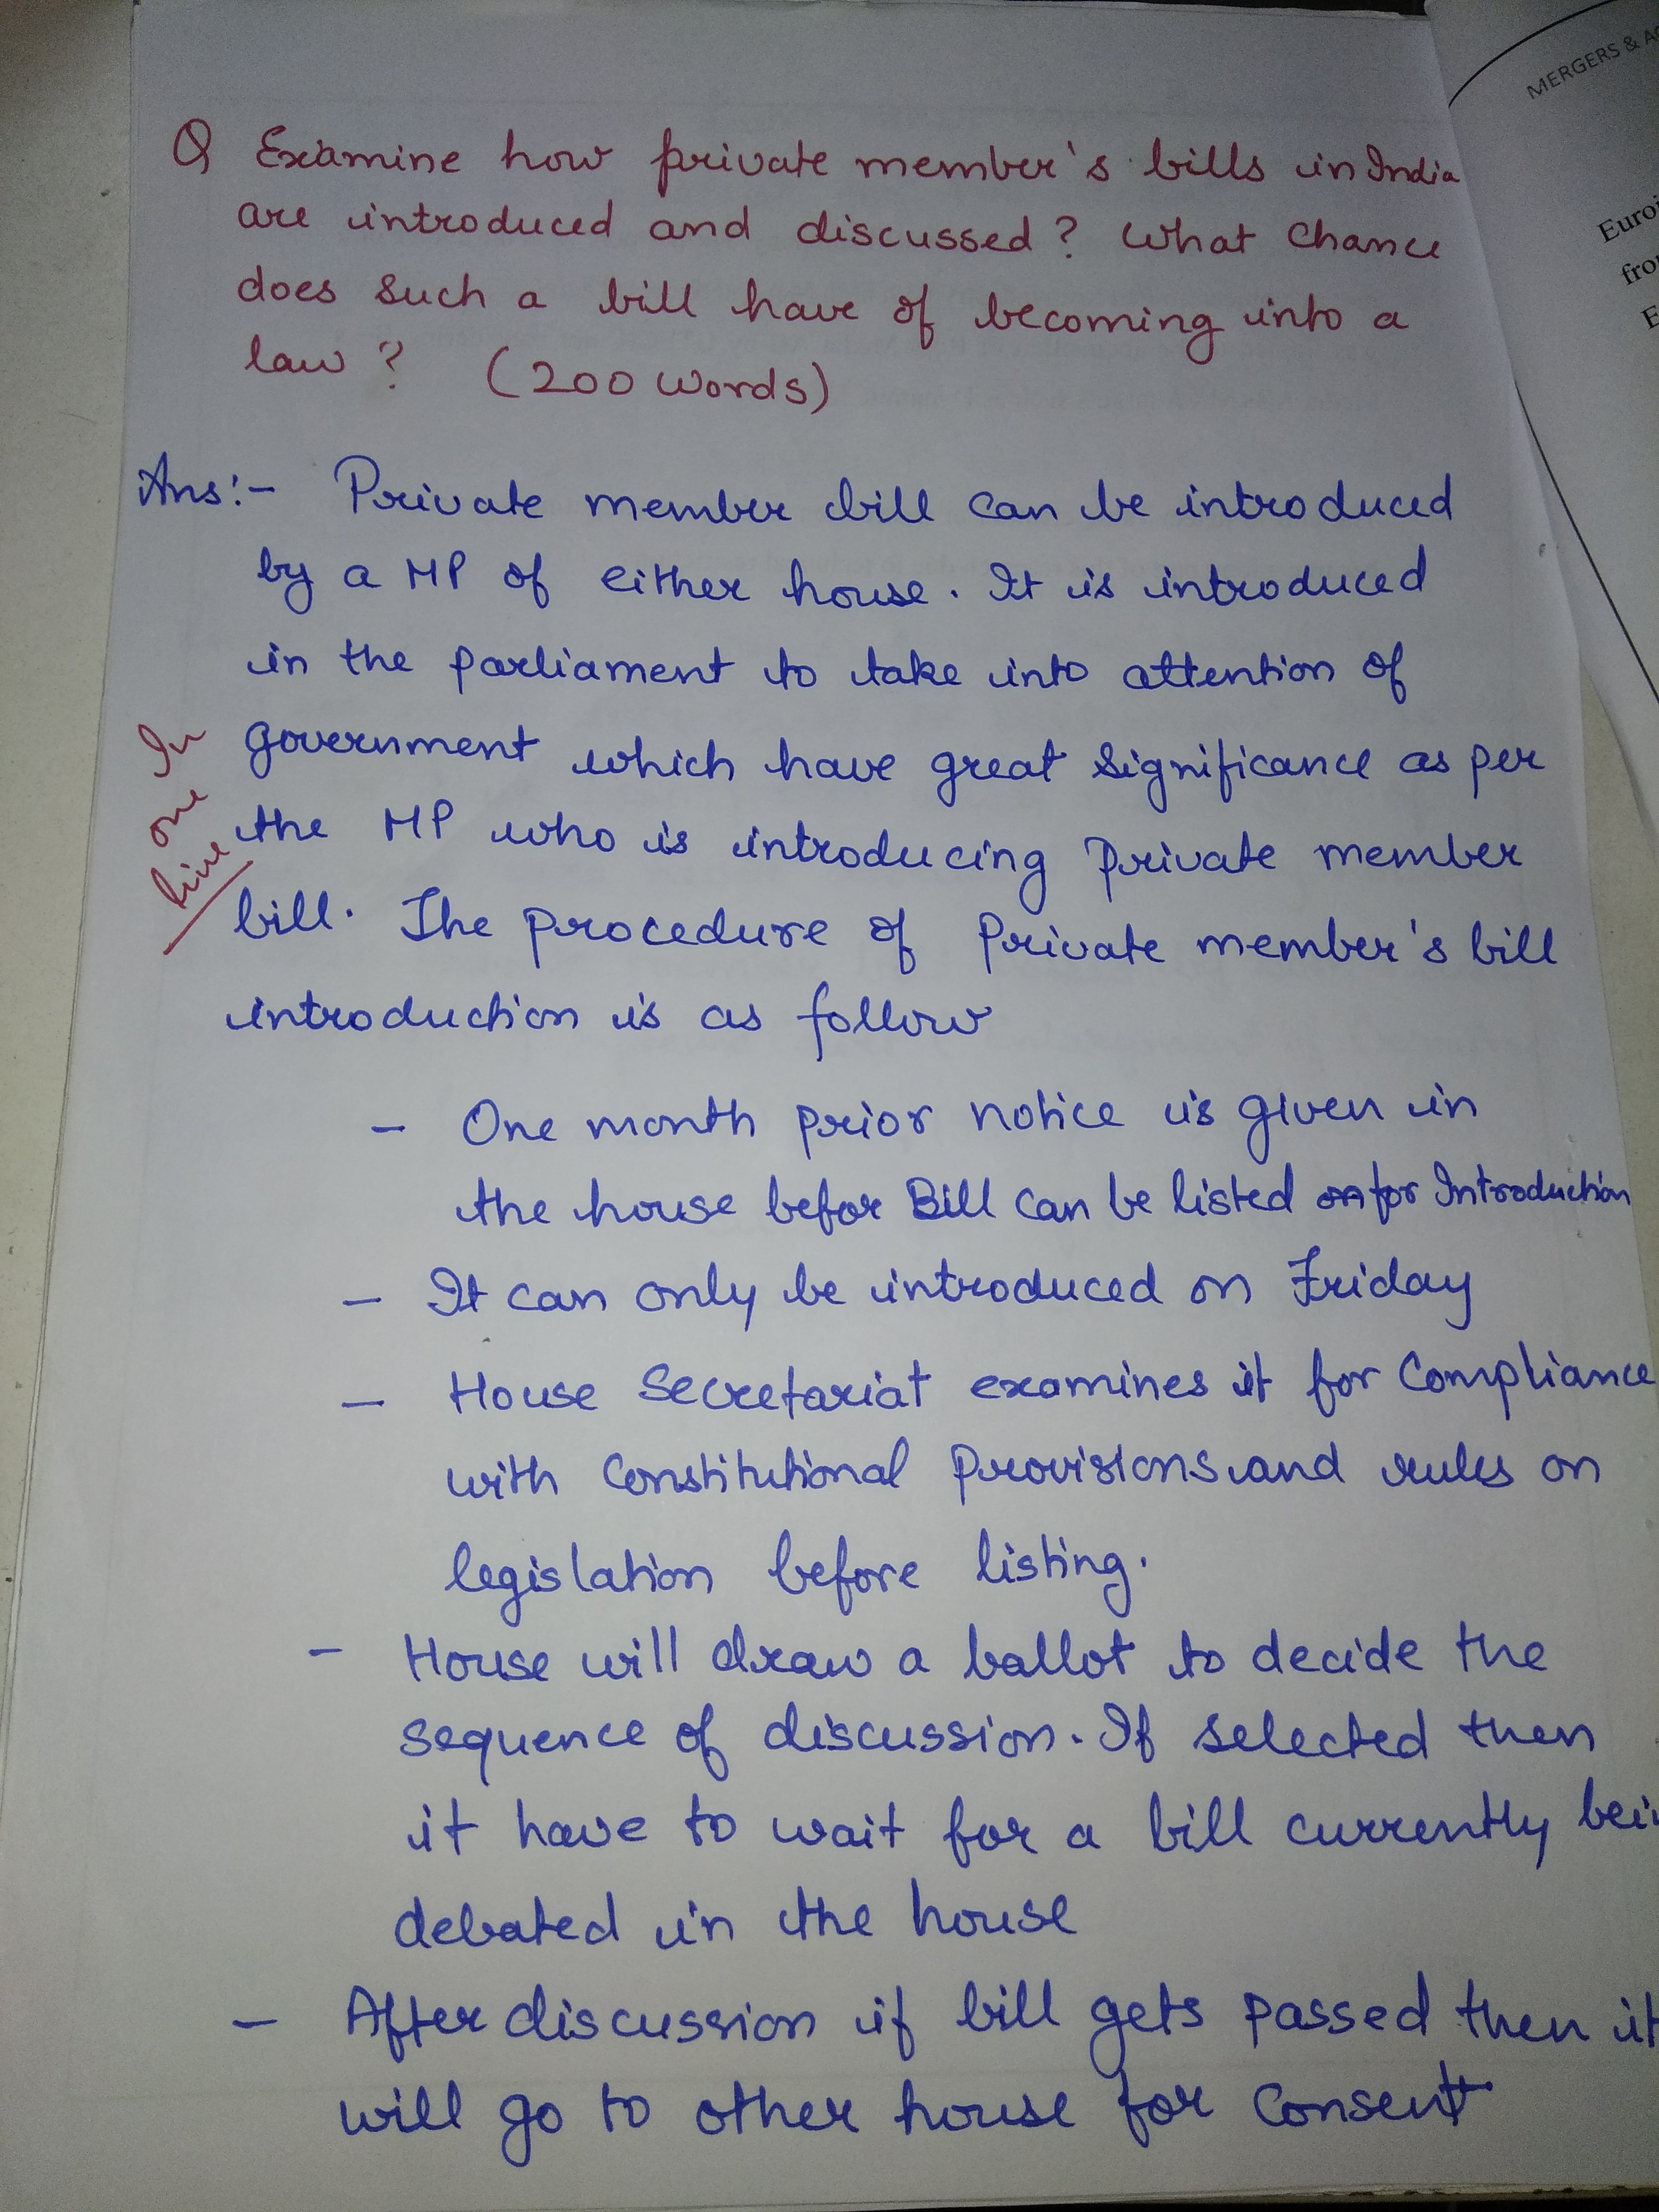 MERGERS & A
Q Examine how private member's bills in India
are introduced and discussed? What chance
does such a bill have of becoming into a
law? (200 words)
Euroi
fro
E
Ans:- Private member bill can be introduced
by a MP of either house. It is introduced
in the parliament to take into attention of
government which have great significance as per
the MP who is introducing private member
bill. The procedure of private member's bill
introduction is as follow
In
one
line
- One month prior notice is given in
the house befor Bill can be listed for Introduction
- It can only be introduced on Friday
- House secretariat examines it for compliance
with constitutional provisions and rules on
legislation before listing.
- House will draw a ballot to decide the
sequence of discussion. If selected then
it have to wait for a bill currently bei
debated in the house
- After discussion if bill gets passed then it
will go to other house for consent